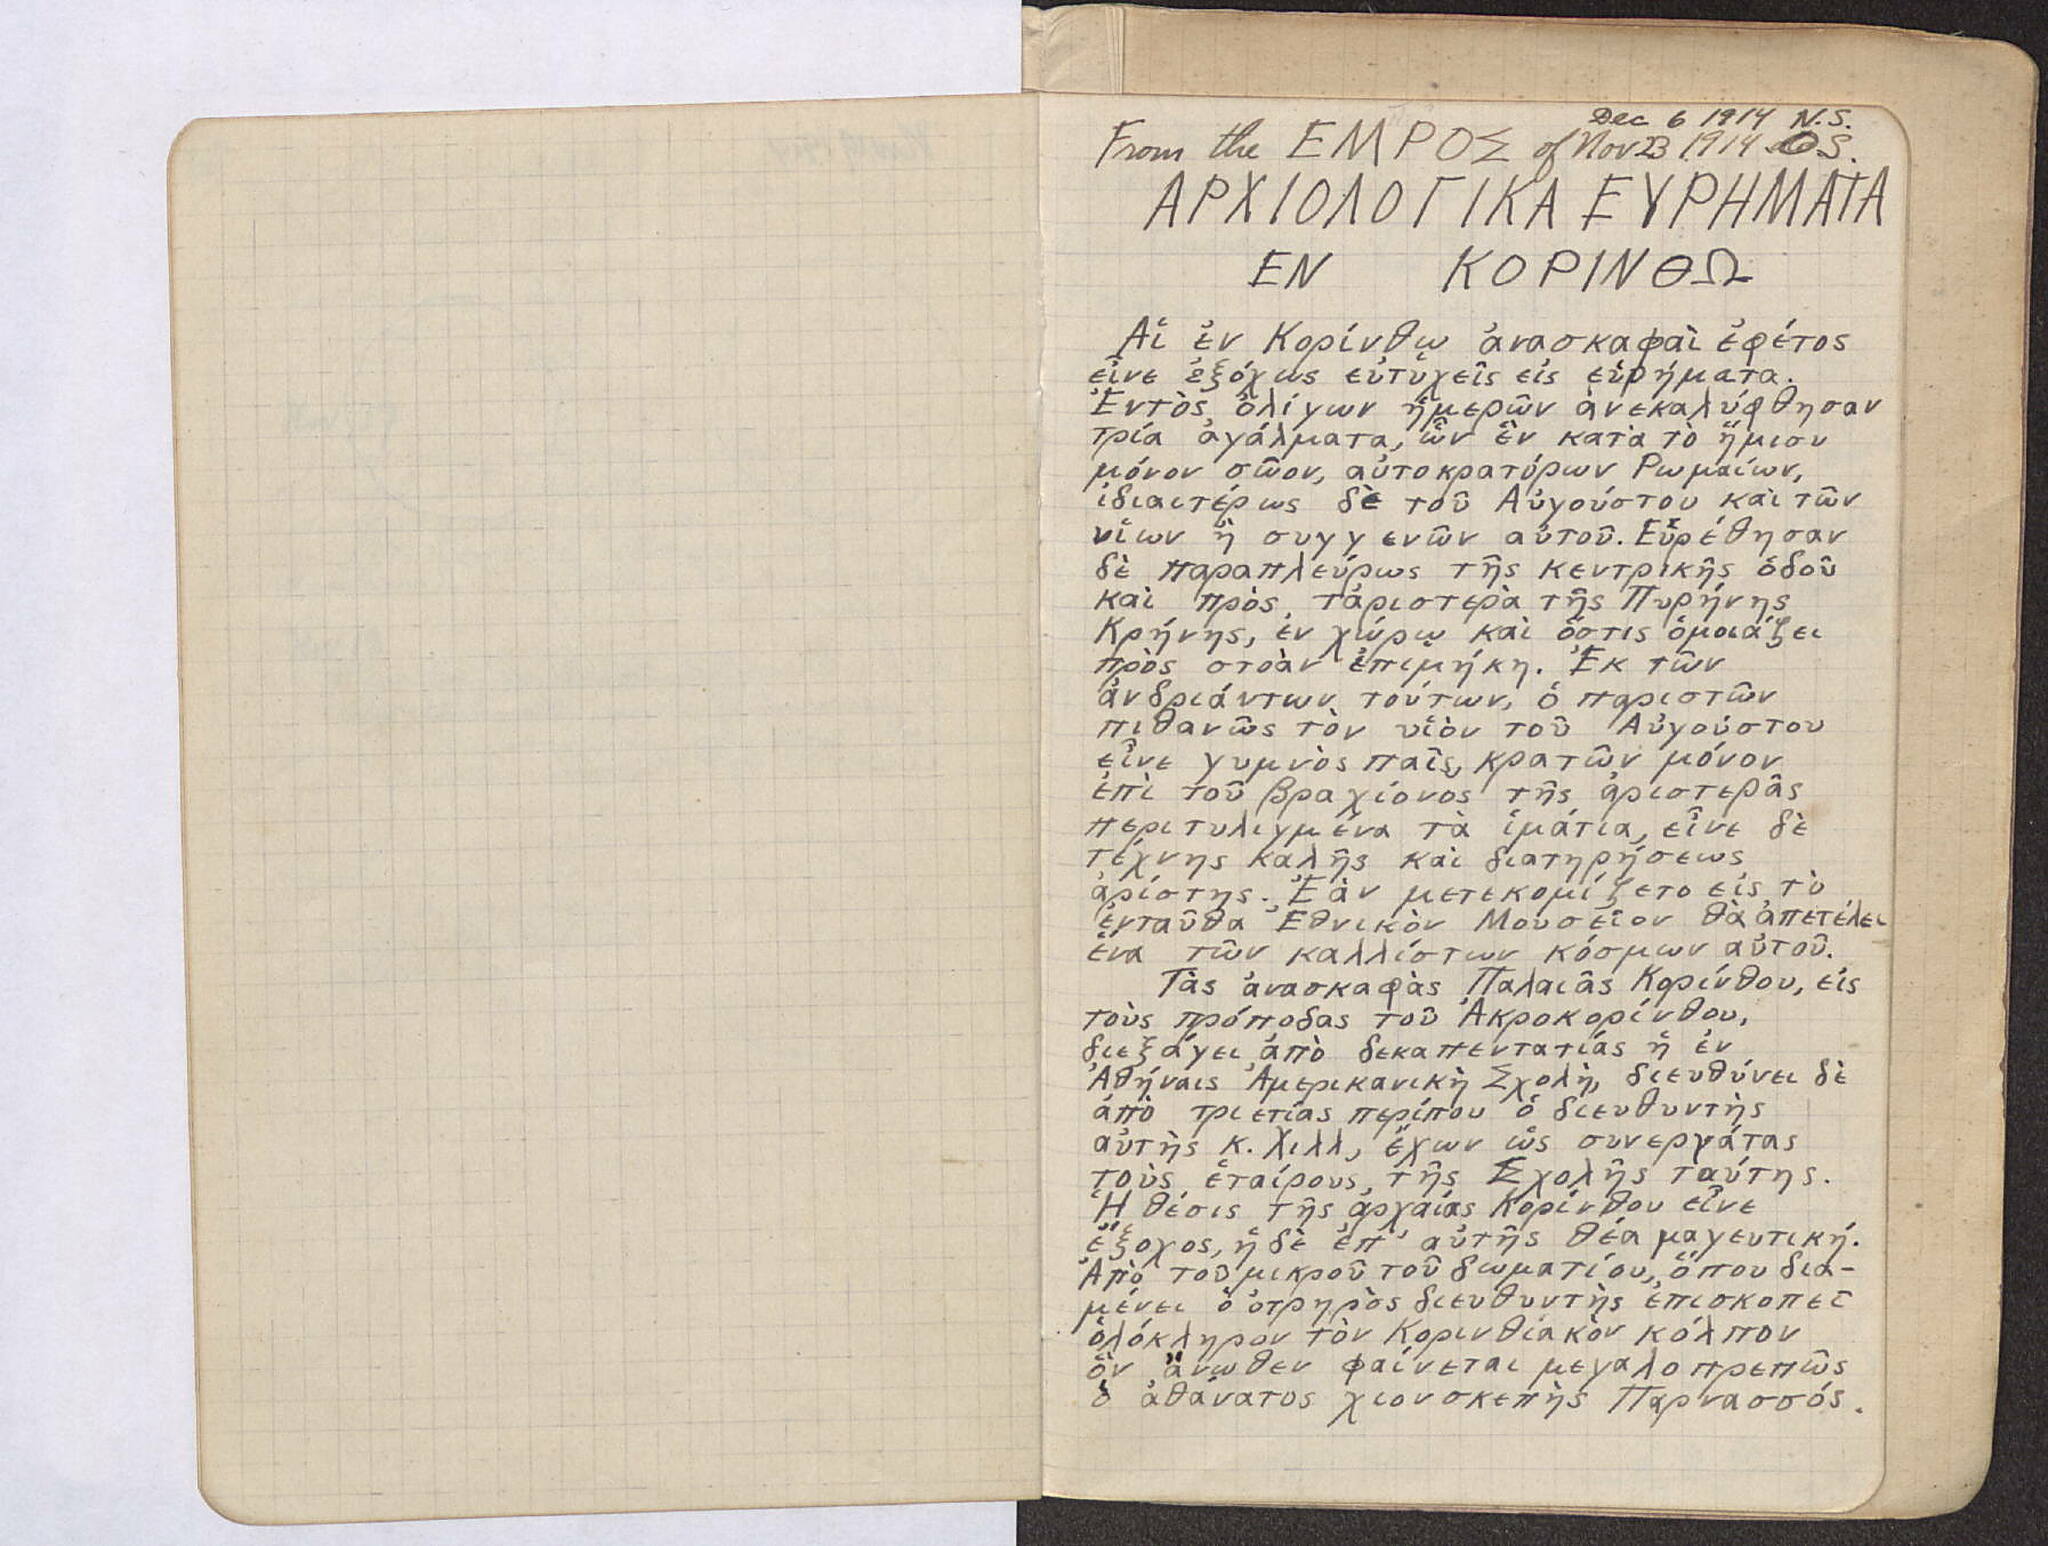 Dec 6 1914 N.S.
From the ΕΜΡΟΣ of Nov 23 1914 O.S.
ΑΡΧΙΟΛΟΓΙΚΑ ΕΥΡΗΜΑΤΑ
ΕΝ ΚΟΡΙΝΘΩ
Αἱ ἐν Κορίνθῳ ἀνασκαφαὶ ἐφέτος
εἶνε ἐξόχως εὐτυχεῖς εἰς εὑρήματα.
Ἐντὸς ὀλίγων ἡμερῶν ἀνεκαλύφθησαν
τρία ἀγάλματα, ὧν ἓν κατὰ τὸ ἥμισυ
μόνον σῶον, αὐτοκρατόρων Ρωμαίων,
ἰδιαιτέρως δὲ τοῦ Αὐγούστου καὶ τῶν
υἱων ἢ συγγενῶν αὐτοῦ. Εὑρέθησαν
δὲ παραπλεύρως τῆς κεντρικῆς ὁδοῦ
καὶ πρὸς τἀριστερὰ τῆς Πυρήνης
Κρήνης, ἐν χώρῳ καὶ ὅστις ὁμοιάζει
πρὸς στοὰν ἐπιμήκη. Ἐκ τῶν
ἀνδριάντων τούτων, ὁ παριστῶν
πιθανῶς τὸν υἱὸν τοῦ Αὐγούστου
εἶνε γυμνὸς παῖς, κρατῶν μόνον
ἐπὶ τοῦ βραχίονος τῆς ἀριστερᾶς
περιτυλιγμένα τὰ ἱμάτια, εἶνε δὲ
τέχνης καλῆς καὶ διατηρήσεως
ἀρίστης. Ἐὰν μετεκομίζετο εἰς τὸ
ἐνταῦθα Ἐθνικὸν Μουσεῖον θὰ ἀπετέλει
ἕνα τῶν καλλίστων κόσμων αὐτοῦ.
Τὰς ἀνασκαφὰς Παλαιᾶς Κορίνθου, εἰς
τοὺς πρόποδας τοῦ Ἀκροκορίνθου,
διεξάγει ἀπὸ δεκαπενταετίας ἡ ἐν
Ἀθήναις Ἀμερικανικὴ Σχολὴ, διευθύνει δὲ
ἀπὸ τριετίας περίπου ὁ διευθυντὴς
αὐτῆς κ. Χιλλ, ἔχων ὡς συνεργάτας
τοὺς ἑταίρους τῆς Σχολῆς ταύτης.
Ἡ θέσις τῆς ἀρχαίας Κορίνθου εἶνε
ἔξοχος, ἡ δὲ ἐπ' αὐτῆς θέα μαγευτική.
Ἀπὸ τοῦ μικροῦ τοῦ δωματίου, ὅπου δια-
μένει ὁ ὀτρηρὸς διευθυντὴς ἐπισκοπεῖ
ὁλόκληρον τὸν Κορινθιακὸν κόλπον
ὃν ἄνωθεν φαίνεται μεγαλοπρεπῶς
ὁ ἀθάνατος χιονσκεπὴς Παρνασσός.